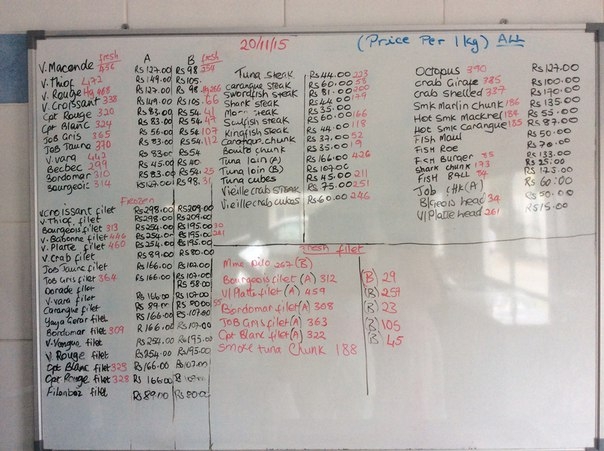 20/11/15 (Price Per 1kg) ALL
fresh A B fresh
V. Maconde 456 Rs 127.00 Rs 98
V. Thiof 472 Rs 149.00 Rs 105
V. Rouge Rs 127.00 Rs 98
V. Croissant 338 Rs 149.00 Rs 105 66
Cpt Rouge 320 Rs 83.00 Rs 54 41
Cpt Blanc 324 Rs 83.00 Rs 54
Job Gris 365 Rs 56.00 Rs 54 107
Job Jaune 370 Rs 83.00 Rs 54 112
V. vara 442 Rs 83.00
Becbec 299 Rs 45.00 Rs 40
Bordomar 310 Rs 83.00 Rs 54 25
Bourgeois 314 Rs 127.00 Rs 98 31
Tuna steak Rs 44.00 223
carangue steak Rs 60.00 58
Swordfish steak Rs 55.00 200
Shark steak Rs 44.00 179
steak Rs 35.00
Sailfish steak Rs 60.00 166
Kingfish steak Rs 44.00 118
chunk Rs 37.00 52
Bonito chunk Rs 35.00 19
Tuna loin (A) Rs 166.00 426
Tuna loin (B) Rs 107.00
Tuna cubes Rs 45.00 211
Vieille crab steak Rs 75.00 251
Vieille crab cubes Rs 60.00 246
Octopus 390 Rs 127.00
crab Girafe 385 Rs 100.00
crab Shelled 387 Rs 190.00
Smk Marlin chunk 186 Rs 135.00
Hot Smk Mackrel 184 Rs 55.00
Hot Smk Carangue 185 Rs 87.00
FISH Maul Rs 50.00
Fish Roe Rs 70.00
Fish Burger 85 Rs 133.00
Shark chunk 173 Rs 35.00
FISH BALL 84 Rs 123.00
Job (A) Rs 60:00
B/geois head 34 Rs 50.00
V/Platte head 261 Rs 15.00
Frozen
V.croissant filet Rs 298.00 Rs 209.00
V. Thiof filet Rs 298.00 Rs 209.00
Bourgeois filet 313 Rs 254.00 Rs 195.00 30
V. Babonne filet 446 Rs 254.00 Rs 195.00
V. Platte filet 460 Rs 254.00 Rs 195.00 281
V. Crab filet Rs 89.00 Rs 80.00
Job Jaune filet Rs 166.00 Rs 107.00
Job Gris filet 364 Rs 166.00 Rs 107.00
Dorade filet Rs 58.00
V. vara filet Rs 166.00 Rs 107.00
Carangue filet Rs 89.00 Rs 80.00 55
filet Rs 166.00 Rs 107.00
Bordomar filet 309 R 166.00 Rs 107.00
V. Vongue filet Rs 254.00 Rs 195.00
V. Rouge filet Rs 254.00 Rs 195.00
Cpt Blanc filet 323 Rs 166.00 Rs 107.00
Cpt Rouge filet 328 Rs 166.00
filet Rs 89.00 Rs 80.00
fresh filet
262 (B)
Bourgeois filet (A) 312 (B) 29
V/Platte filet (A) 459 (B) 259
Bordomar filet (A) 308 (B) 23
Job Gris filet (A) 363 (B) 105
Cpt Blanc filet (A) 322 (B) 45
Smoke tuna Chunk 188